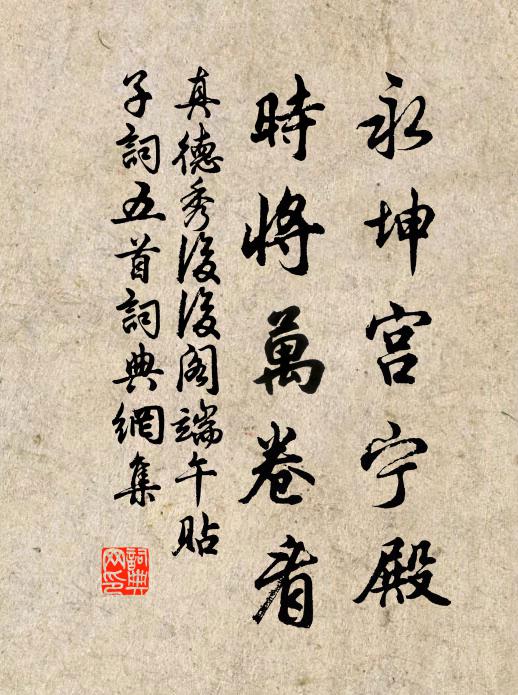 永坤宫宁殿
時將萬卷看
真德秀後後阁端午貼
子詞五首詞典網集
詞典
网印